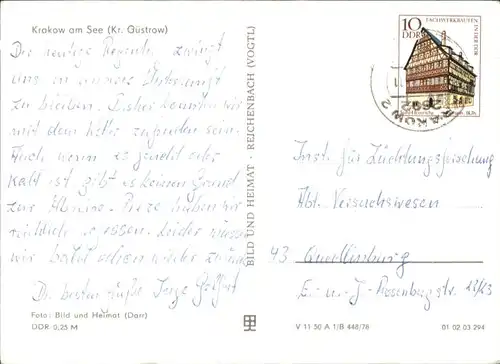 Krakow am See (Kr. Güstrow)
Der heutige Regentag zwingt
uns in unserer Unterkunft
zu bleiben. Bisher konnten wir
mit dem Wetter zufrieden sein.
Auch wenn es regnet oder
kalt ist gibt es keinen Grund
zur haben wir
reichlich zu essen. Leider müssen
wir bald schon wieder
Die besten Grüße
Foto: Bild und Heimat (Darr)
DDR 0,25 M
BILD UND HEIMAT · REICHENBACH (VOGTL)
10
DDR
FACHWERKBAUTEN
IN DER DDR
KRAKOW
2602
Inst. für Züchtungsforschung
Abt. Versuchswesen
43 Quedlinburg
E.- u.- J.- Rosenbergstr. 12/13
V 11 50 A 1/B 448/78
01 02 03 294